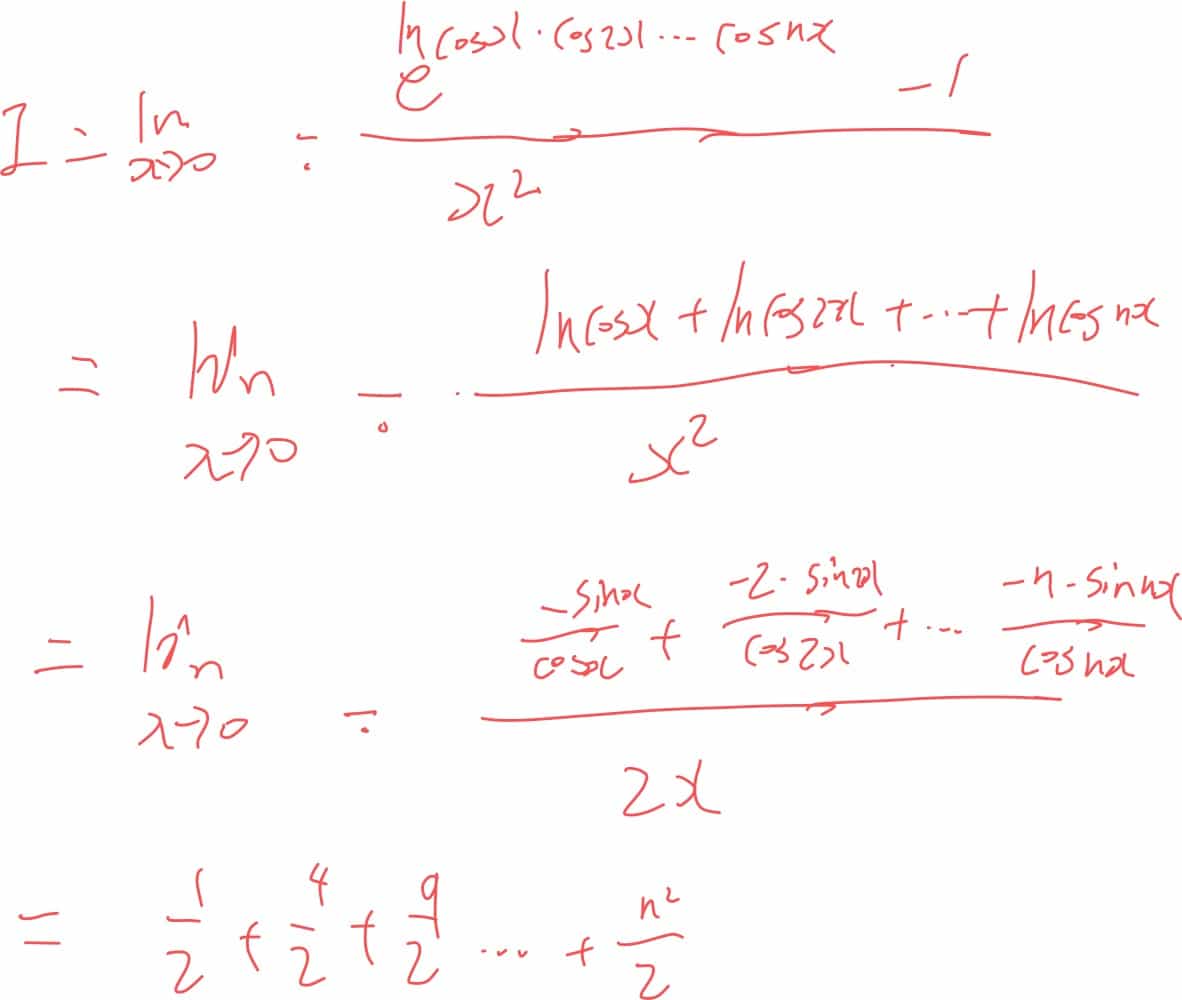 I = lim_{x→0} -\frac{e^{ln cosx·cos2x···cosnx} -1}{x^2}
= lim_{x→0} -\frac{lncosx + lncos2x + ··· + lncosnx}{x^2}
= lim_{x→0} -\frac{\frac{-sinx}{cosx} + \frac{-2·sin2x}{cos2x} + ··· \frac{-n·sinnx}{cosnx}}{2x}
= \frac{1}{2} + \frac{4}{2} + \frac{9}{2} ··· + \frac{n^2}{2}